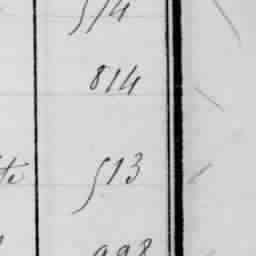 514
814
te 513
998